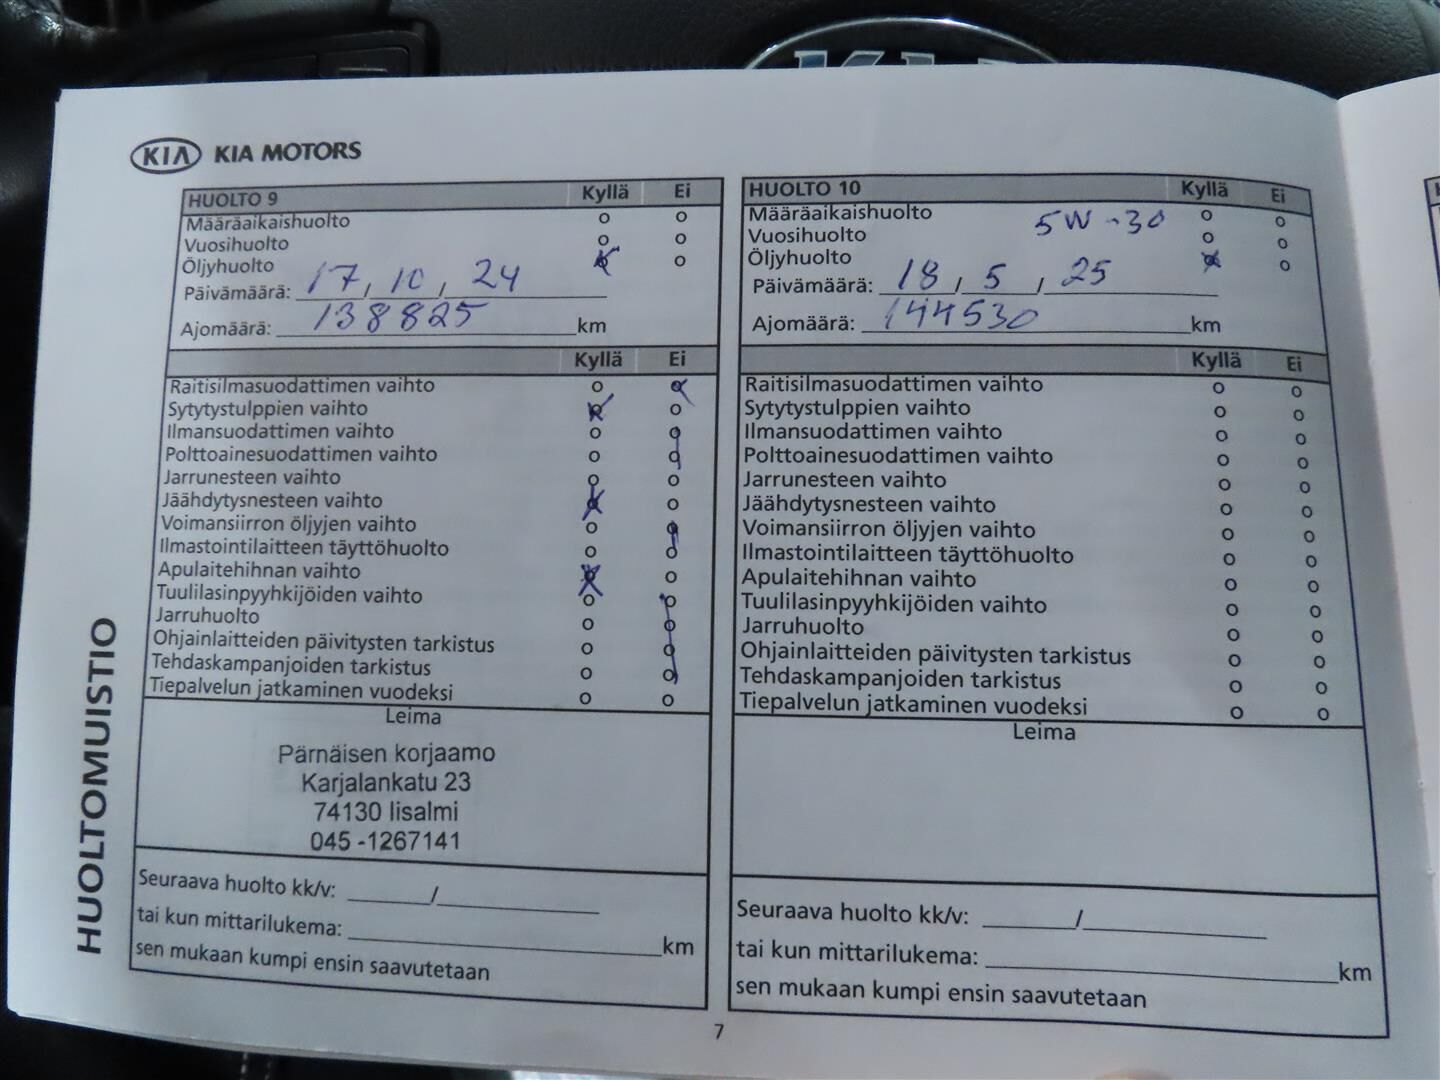 KIA KIA MOTORS
HUOLTO 9 Kyllä Ei
Määräaikaishuolto o o
Vuosihuolto o o
Öljyhuolto o o
Päivämäärä: 17 / 10 / 24
Ajomäärä: 138825 km
Kyllä Ei
Raitisilmasuodattimen vaihto o o
Sytytystulppien vaihto o o
Ilmansuodattimen vaihto o o
Polttoainesuodattimen vaihto o o
Jarrunesteen vaihto o o
Jäähdytysnesteen vaihto o o
Voimansiirron öljyjen vaihto o o
Ilmastointilaitteen täyttöhuolto o o
Apulaitehihnan vaihto o o
Tuulilasinpyyhkijöiden vaihto o o
Jarruhuolto o o
Ohjainlaitteiden päivitysten tarkistus o o
Tehdaskampanjoiden tarkistus o o
Tiepalvelun jatkaminen vuodeksi o o
Leima
Pärnäisen korjaamo
Karjalankatu 23
74130 Iisalmi
045 -1267141
Seuraava huolto kk/v: ______/____________
tai kun mittarilukema: ____________ km
sen mukaan kumpi ensin saavutetaan
HUOLTO 10 Kyllä Ei
Määräaikaishuolto 5W-30 o o
Vuosihuolto o o
Öljyhuolto o o
Päivämäärä: 18 / 5 / 25
Ajomäärä: 144530 km
Kyllä Ei
Raitisilmasuodattimen vaihto o o
Sytytystulppien vaihto o o
Ilmansuodattimen vaihto o o
Polttoainesuodattimen vaihto o o
Jarrunesteen vaihto o o
Jäähdytysnesteen vaihto o o
Voimansiirron öljyjen vaihto o o
Ilmastointilaitteen täyttöhuolto o o
Apulaitehihnan vaihto o o
Tuulilasinpyyhkijöiden vaihto o o
Jarruhuolto o o
Ohjainlaitteiden päivitysten tarkistus o o
Tehdaskampanjoiden tarkistus o o
Tiepalvelun jatkaminen vuodeksi o o
Leima
Seuraava huolto kk/v: ______/____________
tai kun mittarilukema: ____________ km
sen mukaan kumpi ensin saavutetaan
HUOLTOMUISTIO
7